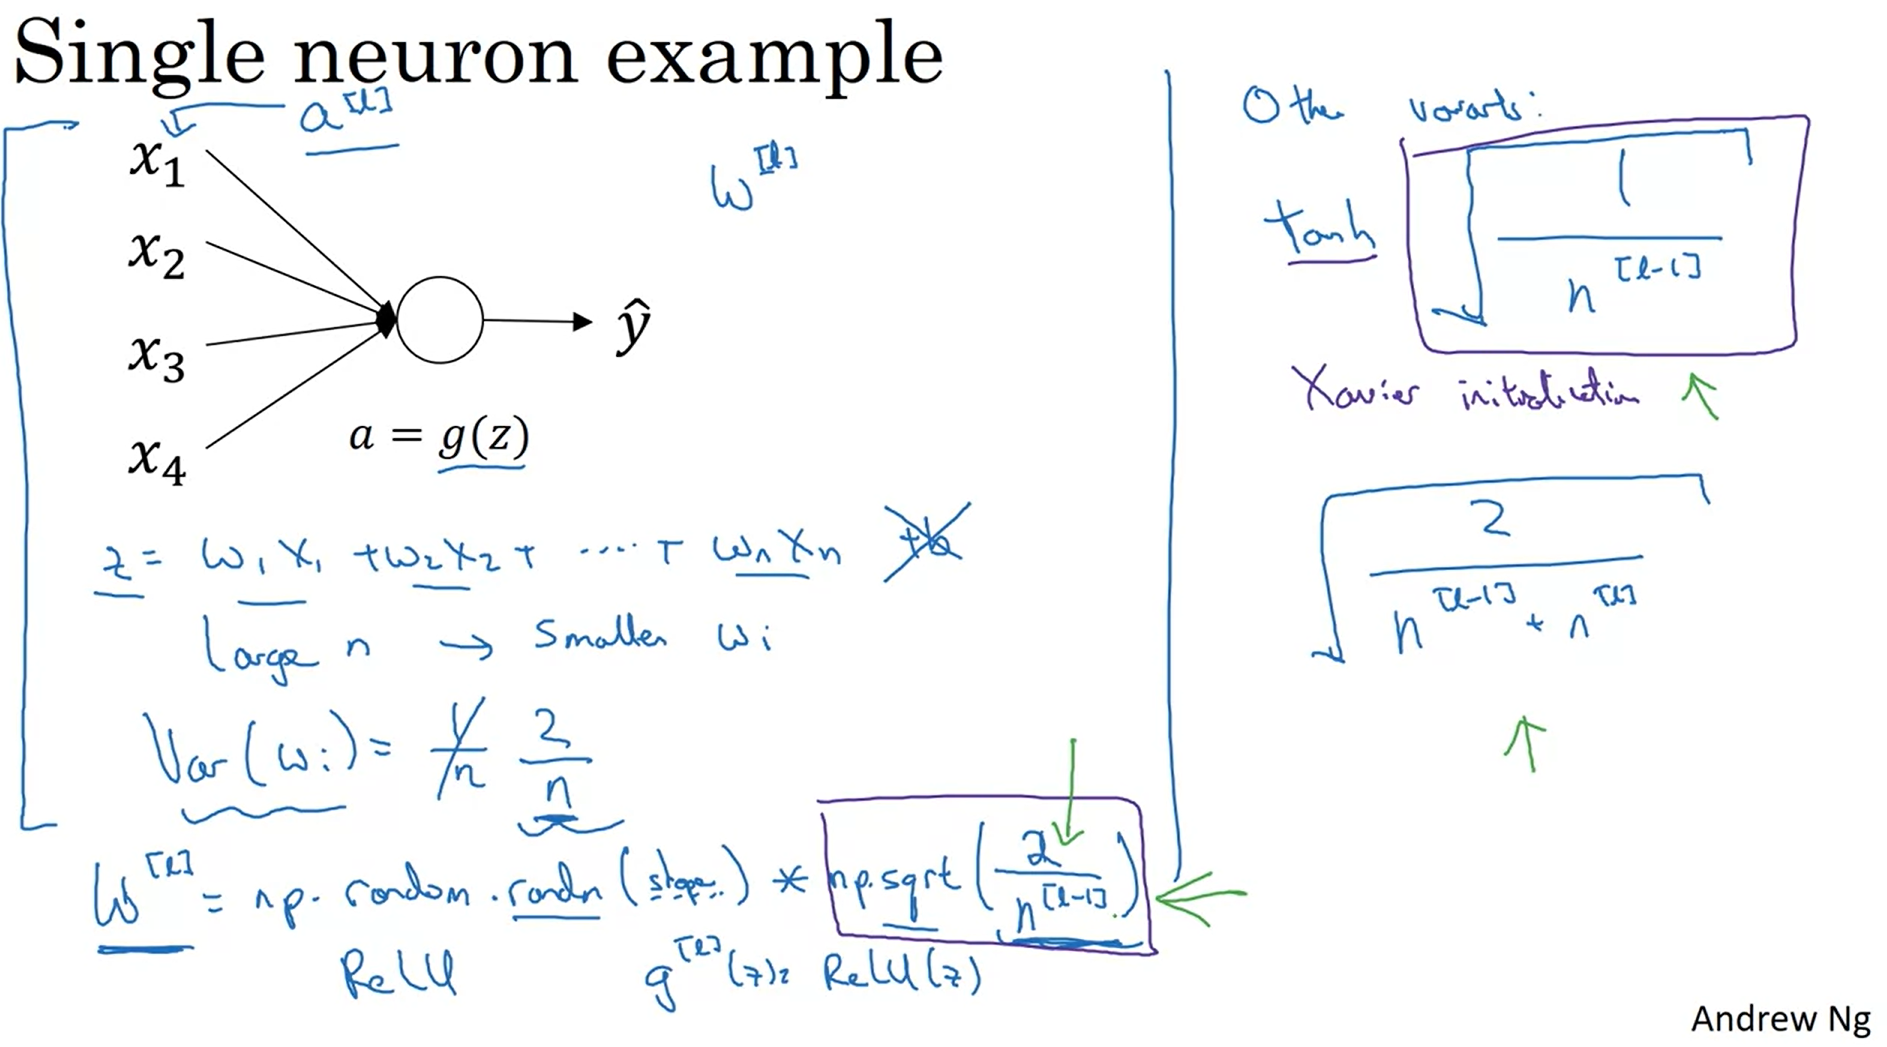 Single neuron example
a^[l]
x₁
x₂
x₃
x₄
ŷ
a = g(z)
W^[l]
z = w₁x₁ + w₂x₂ + ····· + wₙxₙ +b
Large n → Smaller wᵢ
Var(wᵢ) = 1/n 2/n
W^[l] = np.random.randn(shape) * np.sqrt(2/n^[l-1])
ReLU g^[l](z) = ReLU(z)
Other variants:
Tanh √(1/n^[l-1])
Xavier initialization ↑
√(2/(n^[l-1] + n^[l]))
↑
Andrew Ng